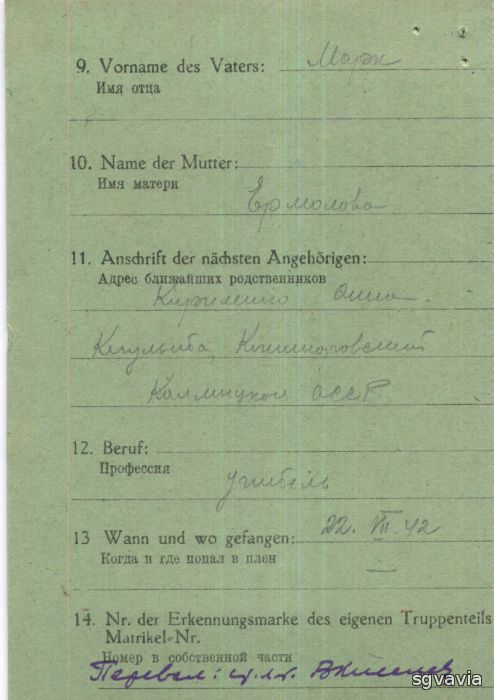 9. Vorname des Vaters: Марк
Имя отца
10. Name der Mutter:
Имя матери
Ермолова
11. Anschrift der nächsten Angehörigen:
Адрес ближайших родственников
Кириленко Анна
Калмицкой АССР
12. Beruf:
Профессия
13 Wann und wo gefangen: 22. VIII. 42
Когда и где попал в плен —
14. Nr. der Erkennungsmarke des eigenen Truppenteils
Matrikel-Nr.
Номер в собственной части
Перевел:
sgvavia